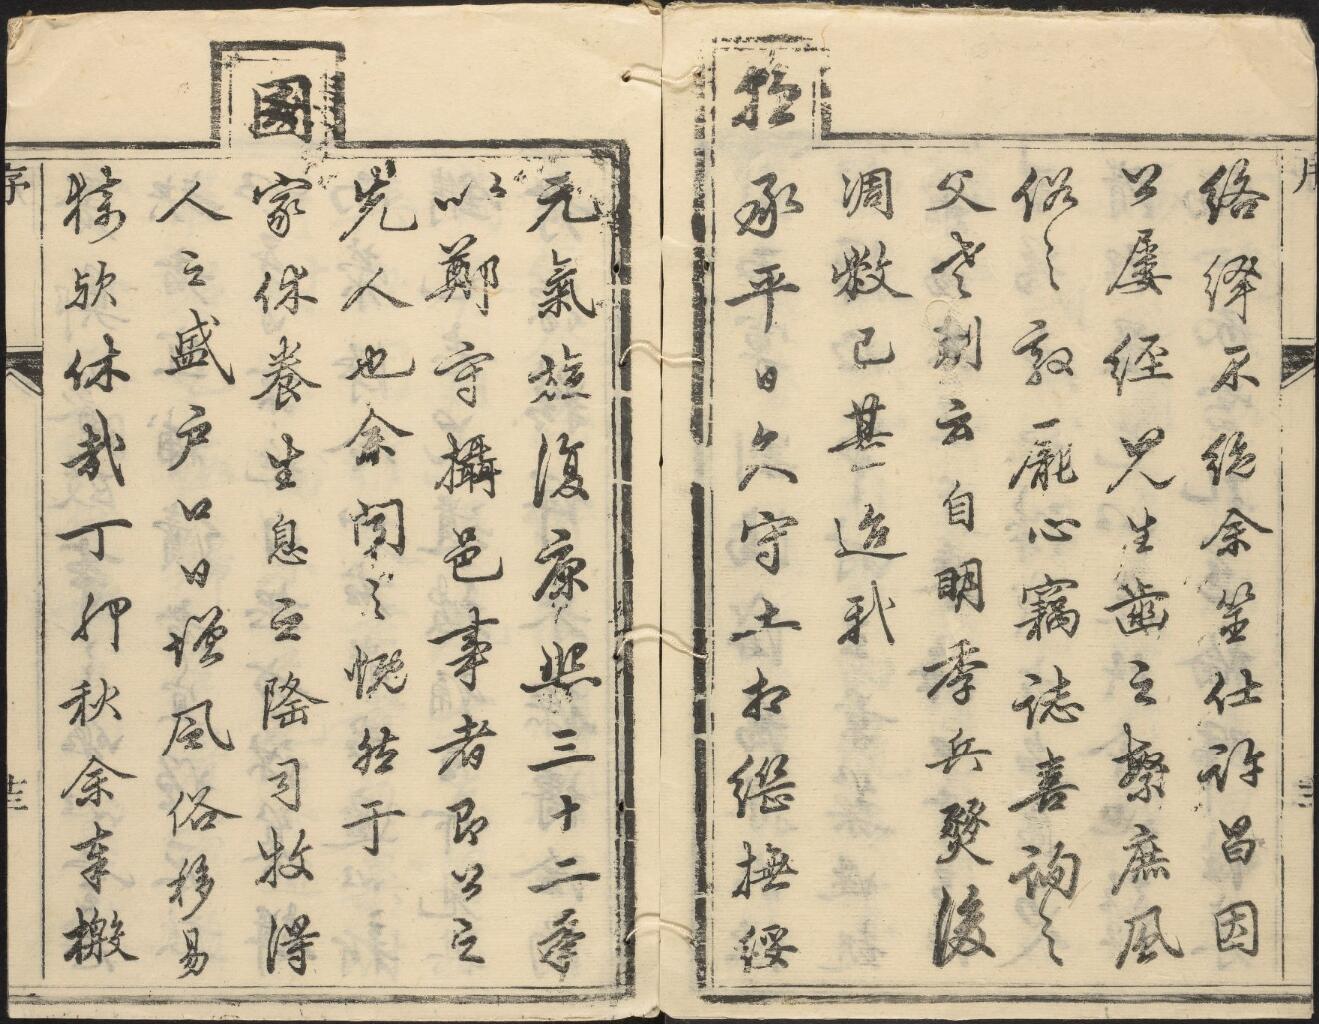 絡繹不絕余筮仕許昌因
公屢經見生齒之繁庶風
俗之敦龐心竊誌喜詢之
父老則云自明季兵燹後
凋敝已甚迨我
朝承平日久守土相繼撫綏
元氣旋復康熙三十二年
以鄭守攝邑事者即公之
先人也余聞之慨然于
國家休養生息之隆司牧得
人之盛戶口日增風俗移易
猗歟休哉丁卯秋余奉檄
序
序